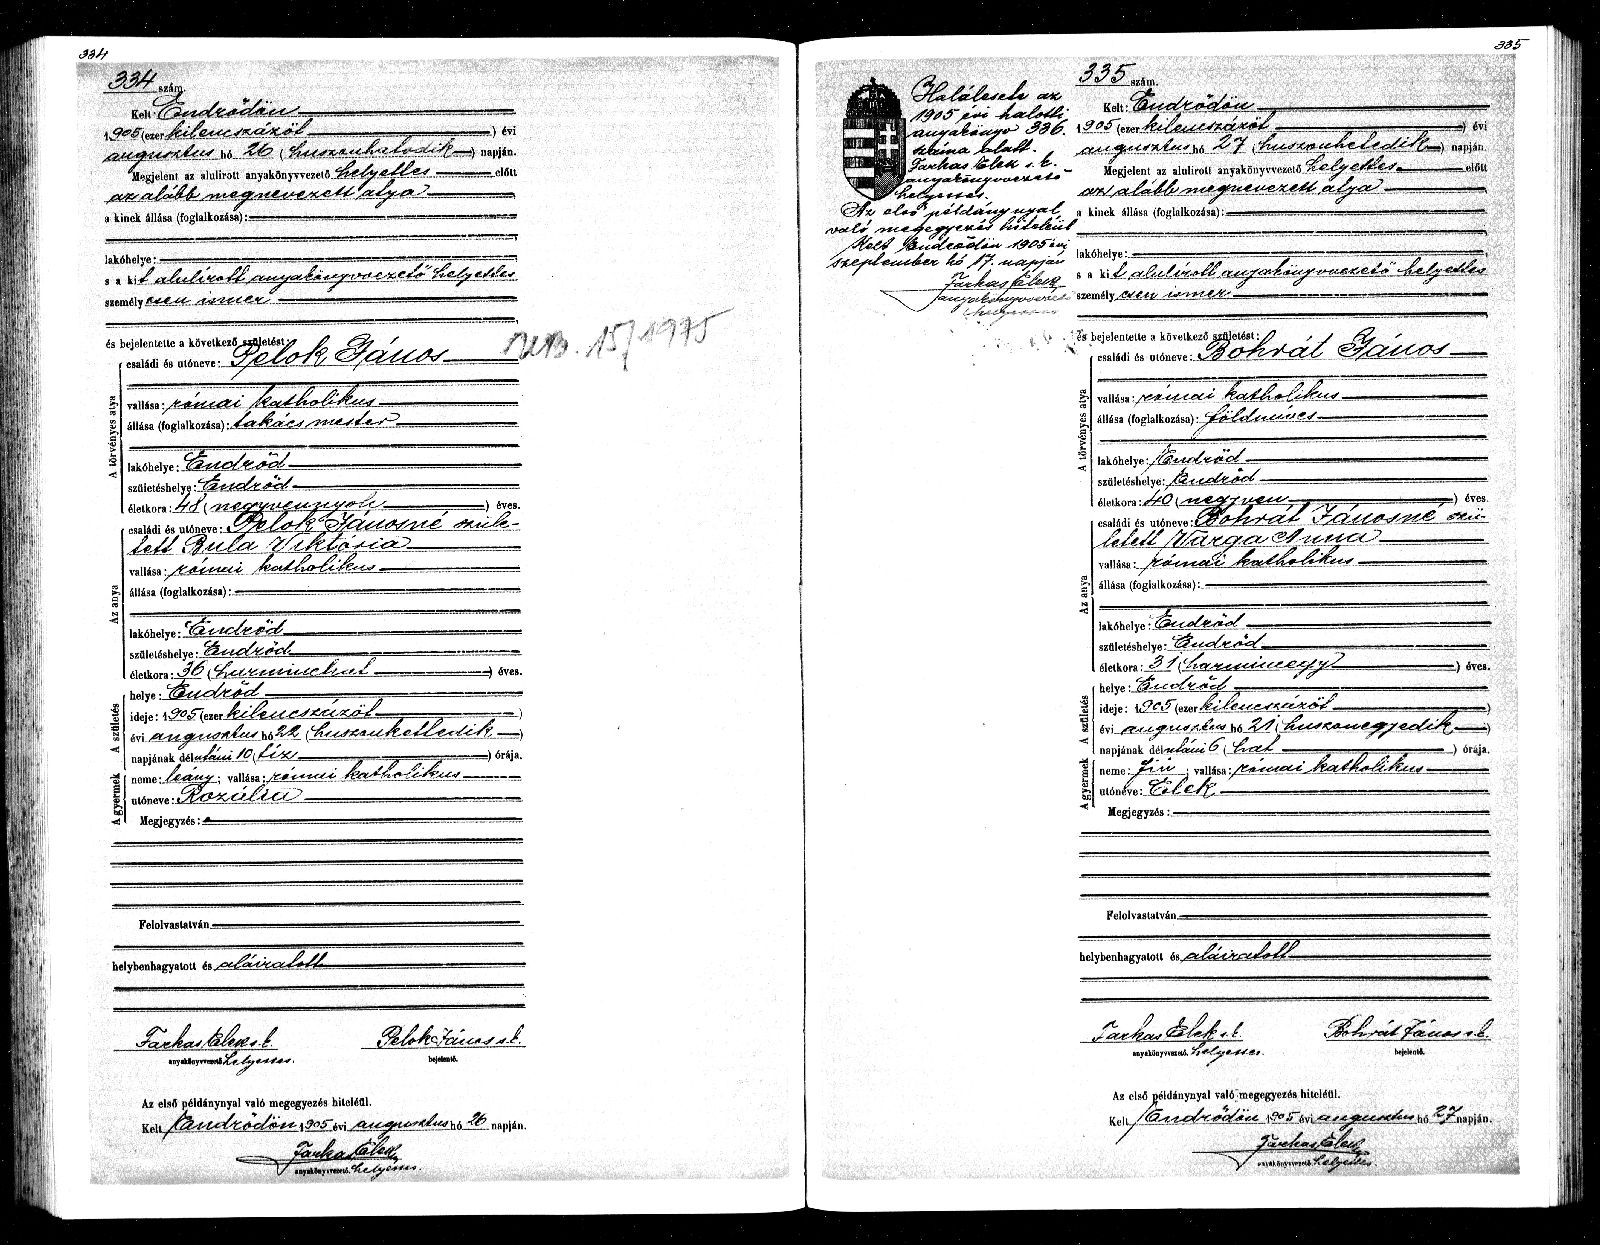 334
334 szám.
Kelt: Endrődön
1905 (ezer kilenczszázöt) évi
augusztus hó 26 (huszonhatodik) napján.
Megjelent az alulirott anyakönyvvezető helyettes előtt
az alább megnevezett atya
a kinek állása (foglalkozása):
lakóhelye:
s a kit alulírott anyakönyvvezető helyettes
személyesen ismer
és bejelentette a következő születést:
A törvényes atya
családi és utóneve: Pelok János
15/1975
vallása: római katholikus
állása (foglalkozása): takács mester
lakóhelye: Endrőd
születéshelye: Endrőd
életkora: 48 (negyvennyolc) éves.
Az anya
családi és utóneve: Pelok Jánosné szüle-
tett Bula Viktória
vallása: római katholikus
állása (foglalkozása):
lakóhelye: Endrőd
születéshelye: Endrőd
életkora: 36 (harminchat) éves.
A születés
helye: Endrőd
ideje: 1905 (ezer kilenczszázöt)
évi augusztus hó 22 (huszonkettedik)
napjának délutáni 10 (tíz) órája.
A gyermek
neme: leány; vallása: római katholikus
utóneve: Rozália
Megjegyzés:
Felolvastatván
helybenhagyatott és aláiratott
Farkas Elek s. k. Pelok János s. k.
anyakönyvvezető helyettes. bejelentő.
Az első példánynyal való megegyezés hiteléül.
Kelt Endrődön 1905 évi augusztus hó 26 napján.
Farkas Elek
anyakönyvvezető helyettes.
335
Halálesete az
1905 évi halotti
anyakönyv 336.
száma alatt.
Farkas Elek s. k.
anyakönyvvezető
helyettes.
Az első példánynyal
való megegyezés hiteléül
Kelt Endrődön 1905 évi
szeptember hó 17. napján
Farkas Elek
anyakönyvvezető
helyettes
335 szám.
Kelt: Endrődön
1905 (ezer kilenczszázöt) évi
augusztus hó 27 (huszonhetedik) napján.
Megjelent az alulirott anyakönyvvezető helyettes előtt
az alább megnevezett atya
a kinek állása (foglalkozása):
lakóhelye:
s a kit alulírott anyakönyvvezető helyettes
személyesen ismer
és bejelentette a következő születést:
A törvényes atya
családi és utóneve: Bohrát János
vallása: római katholikus
állása (foglalkozása): földmíves
lakóhelye: Endrőd
születéshelye: Endrőd
életkora: 40 (negyven) éves.
Az anya
családi és utóneve: Bohrát Jánosné szü-
letett Varga Anna
vallása: római katholikus
állása (foglalkozása):
lakóhelye: Endrőd
születéshelye: Endrőd
életkora: 31 (harminegy) éves.
A születés
helye: Endrőd
ideje: 1905 (ezer kilenczszázöt
évi augusztus hó 21 (huszonegyedik)
napjának délutáni 6 (hat) órája.
A gyermek
neme: fiú; vallása: római katholikus
utóneve: Elek
Megjegyzés:
Felolvastatván
helybenhagyatott és aláiratott
Farkas Elek s. k. Bohrát János s. k.
anyakönyvvezető helyettes. bejelentő.
Az első példánynyal való megegyezés hiteléül.
Kelt Endrődön 1905 évi augusztus hó 27 napján.
Farkas Elek
anyakönyvvezető helyettes.